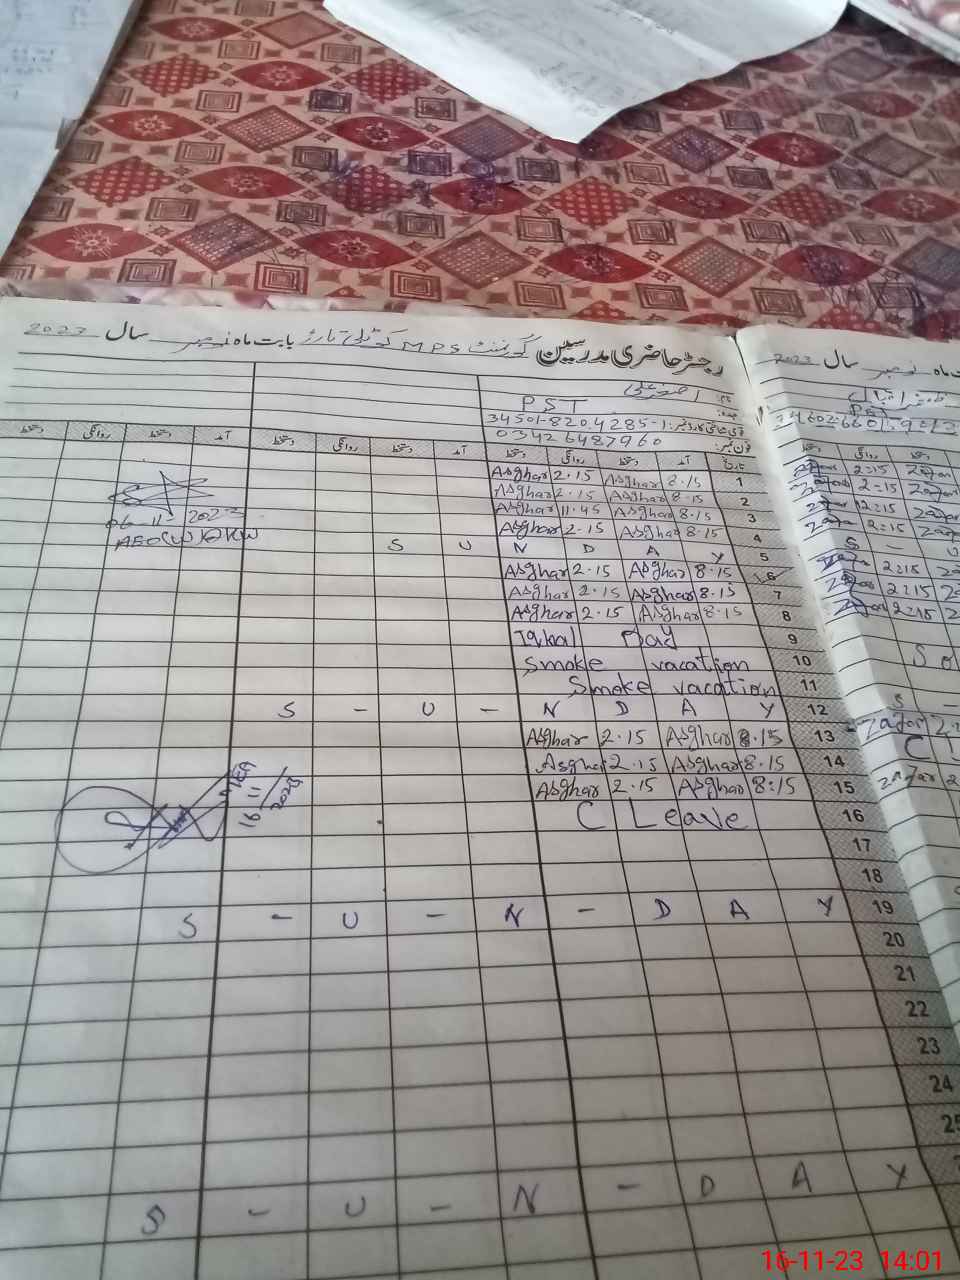 رجسٹر حاضری مدرسین گورنمنٹ MPS بابت ماہ نومبر سال 2023
نام: اصغر علی
عہدہ: PST
قومی شناختی کارڈ نمبر: 34501-8204285-1
فون نمبر: 03426487960
تاریخ آمد دستخط روانگی دستخط آمد دستخط روانگی دستخط آمد دستخط روانگی دستخط
1 8.15 Asghar 2.15 Asghar
2 8.15 Asghar 2.15 Asghar
3 8.15 Asghar 11.45 Asghar
4 8.15 Asghar 2.15 Asghar
5 S U N D A Y
6 8.15 Asghar 2.15 Asghar
7 8.15 Asghar 2.15 Asghar
8 8.15 Asghar 2.15 Asghar
9 Iqbal Day
10 Smoke vacation
11 Smoke vacation
12 S - U - N D A Y
13 8.15 Asghar 2.15 Asghar
14 8.15 Asghar 2.15 Asghar
15 8:15 Asghar 2.15 Asghar
16 C Leave
17
18
19 S - U - N - D A Y
20
21
22
23
24
25
S - U - N - D A Y
06-11-2023
16/11/2023
ماہ نومبر سال 2023
PST
دستخط روانگی دستخط
Zafar 2:15 Zafar
Zafar 2:15 Zafar
Zafar 2:15 Zafar
Zafar 2:15 Zafar
S - U
Zafar 2:15
Zafar 2:15
Zafar 2:15
S -
Zafar
C L
Zafar
16-11-23 14:01